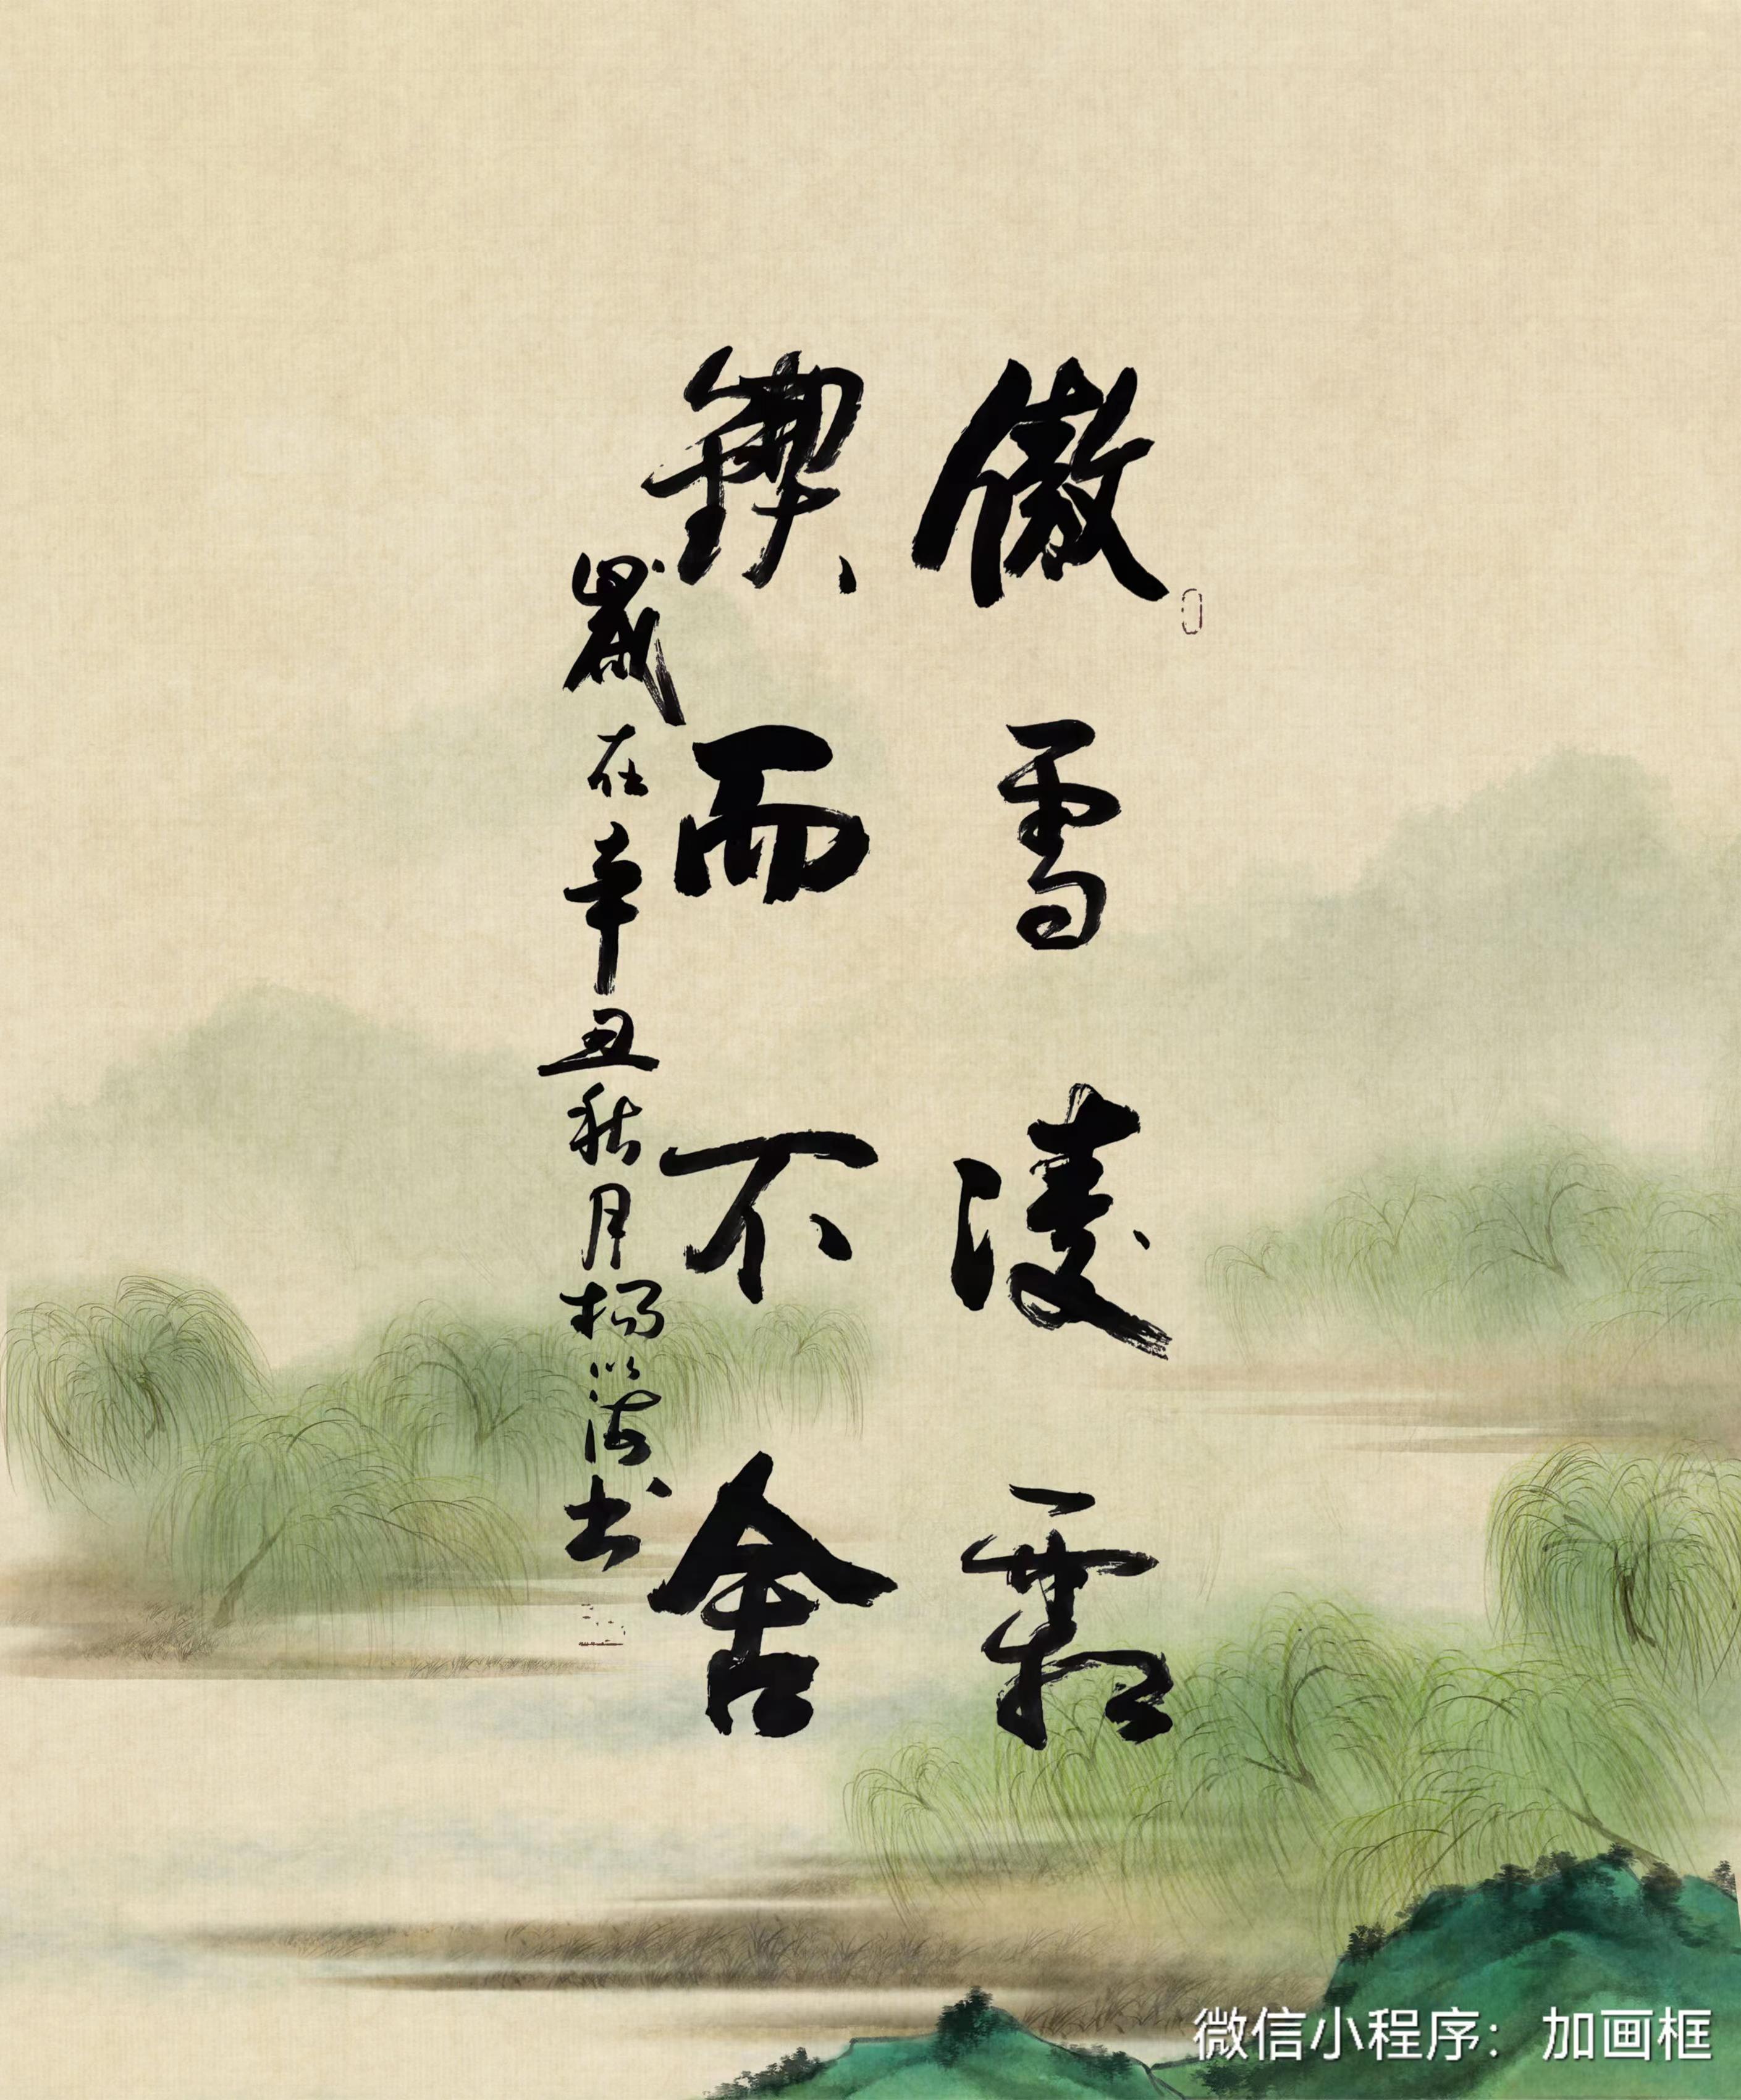 傲雪凌霜
鍥而不舍
歲在辛丑秋月楊以海书
微信小程序：加画框